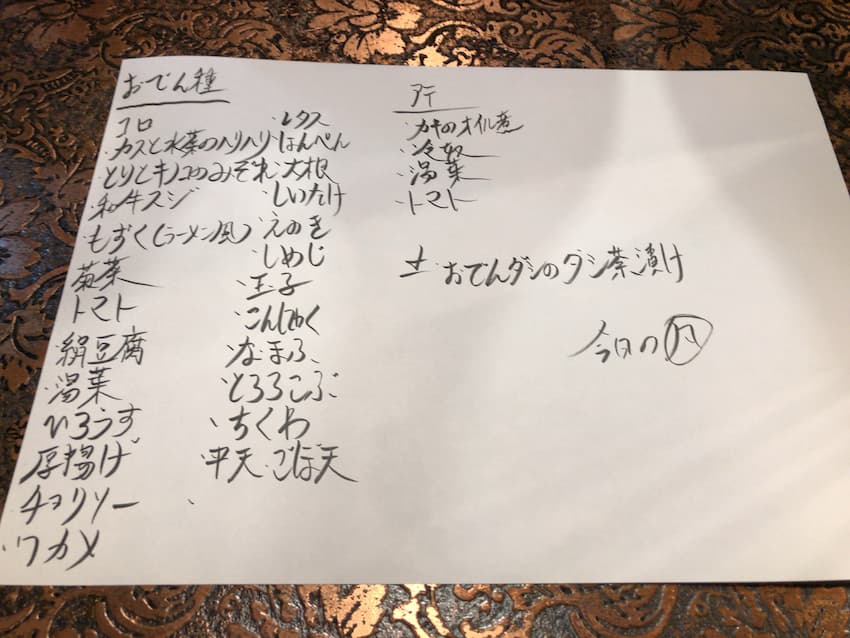 おでん種
・コロ
・カスと水菜のハリハリ
・とりとキノコのみぞれ
・和牛スジ
・もずく(ラーメン風)
・菊菜
・トマト
・絹豆腐
・湯葉
・ひろうす
・厚揚げ
・チョリソー
・ワカメ
・レタス
・はんぺん
・大根
・しいたけ
・えのき
・しめじ
・玉子
・こんにゃく
・なまふ
・とろろこぶ
・ちくわ
・平天・ごぼ天
アテ
・カキのオイル煮
・冷奴
・湯葉
・トマト
〆・おでんダシのダシ茶漬け
今日の